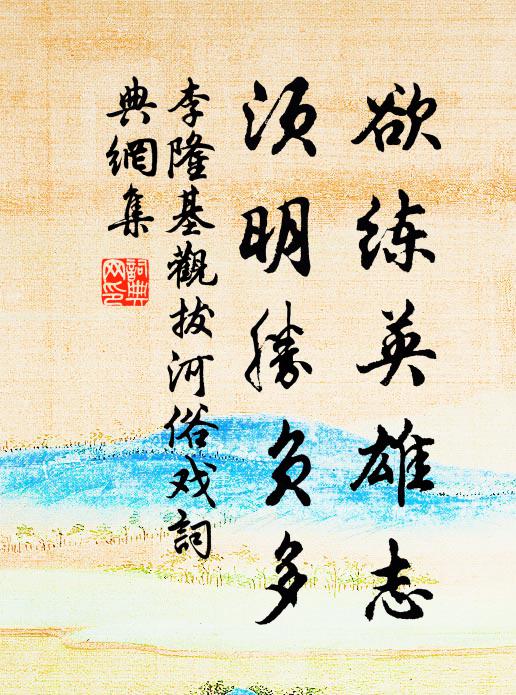 欲练英雄志
须明勝负多
李隆基觀拔河俗戏詞
典網集
詞典
网印